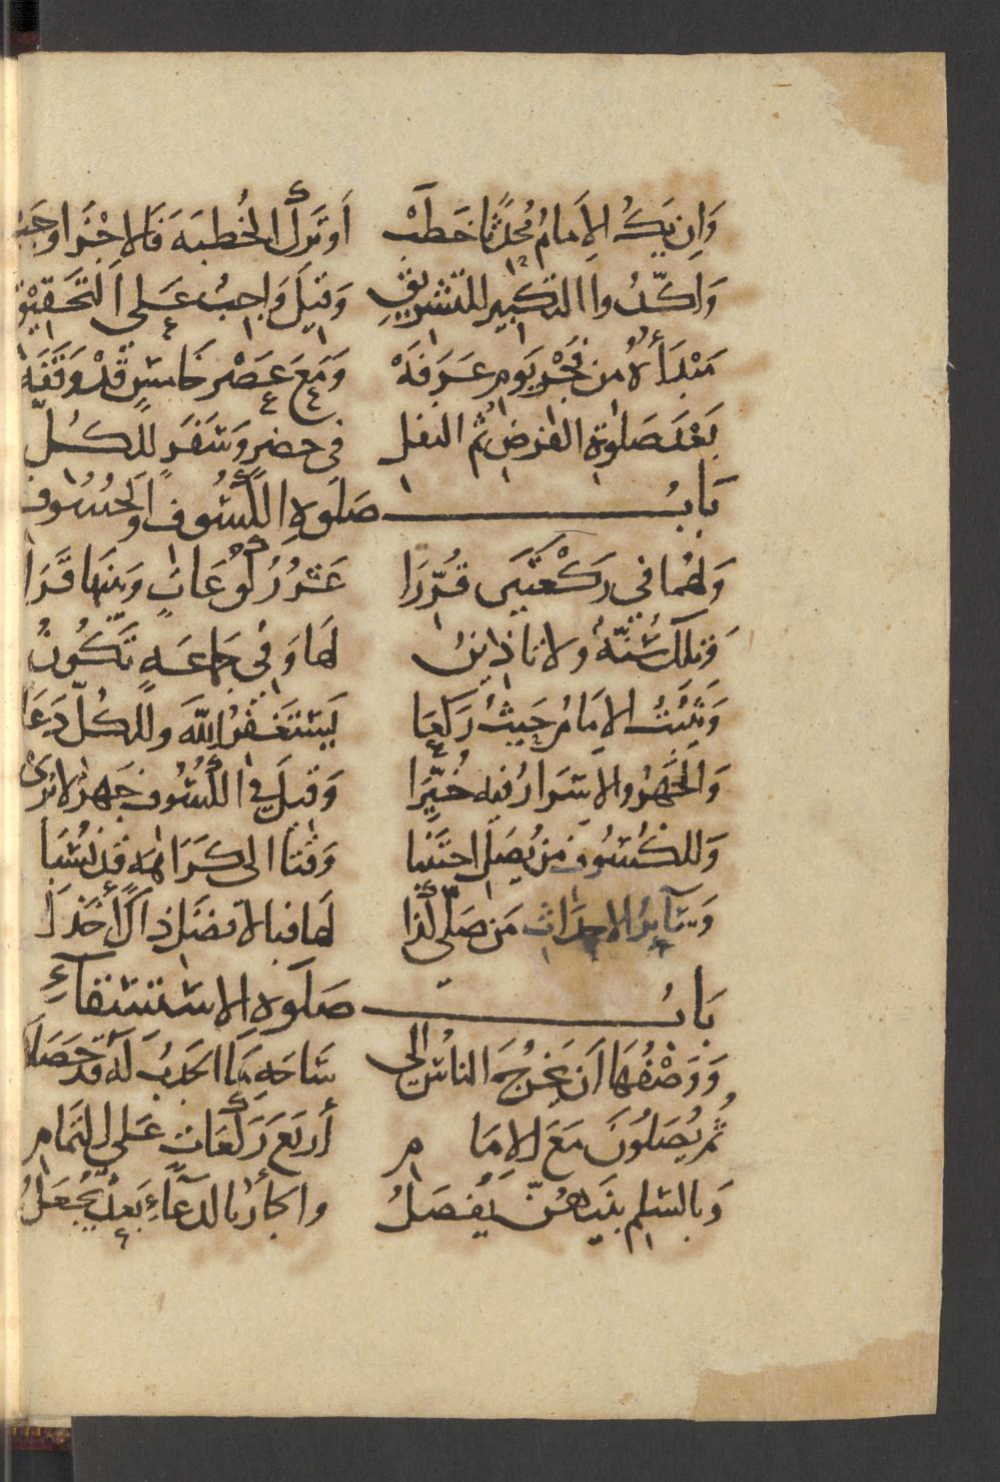 وَاِن يَكُ الاِمَامُ مُحْدِثًا خَطَبْ أَو تَرَكَ الخُطبَه فَالاجْزَا وَجَبْ
وَاَكَّدُوا التكبير للتشريقِ وَقِيلَ وَاجِبُ عَلى التَّحَقِيْقِ
مَبْدَأهُ من فَجْرِ يَومِ عَرَفَهْ وَمَعَ عَصْرِ خَامسٍ قَدْ وَقَفَهْ
بَعْدَ صَلوةِ الفَرضِ ثُم النفل في حضرٍ وَسَفَرٍ للكُلّ
بَابُ صَلَوةِ الكُسُوف اوِ الخُسُوف
وَلهُما في رَكْعَتَيَن قُرِّرَا عَشرُ رُكُوعَاتٍ وَمنها قَرَا
وَتلكَ سُنّةٌ ولا تاذينُ لَها وَفي جمَاعَهٍ تَكُونُ
وَيَثبُتُ الاِمَامُ حَيثُ رَكَعَا يَستَغفرُ اللّهَ وللكُلّ دَعَا
وَالجَهرُ والاِسرَارُ فيه خُيِّرَا وَقيلَ في الكُسُوفِ جَهرٌ لا يُرَى
وَللكُسُوفِ مَن يُصَلّ اجتَنَبا وَقتًا الى كَرَاهَه قد نُسبَا
وَسَآئرُ الاحدَاثِ مَن صَلّى لَذا لها فبالافضَلِ ذاكَ أَخَذَا
بَابُ صَلَوةِ الاِستسقآءِ
وَوَصْفُهَا اَن يَخرُجَ الناسُ الى سَاحَهِ مَا الجَدبُ لَهُ قَد حَصَلَا
ثُم يُصَلونَ مَعَ الاِمَامِ أربَعَ رَكَعَاتٍ عَلى التمامِ
وَبالسَلِم بَينَهُنّ يُفصَلُ والجأرُ بالدعَآءِ بَعدُ يُجعَلُ